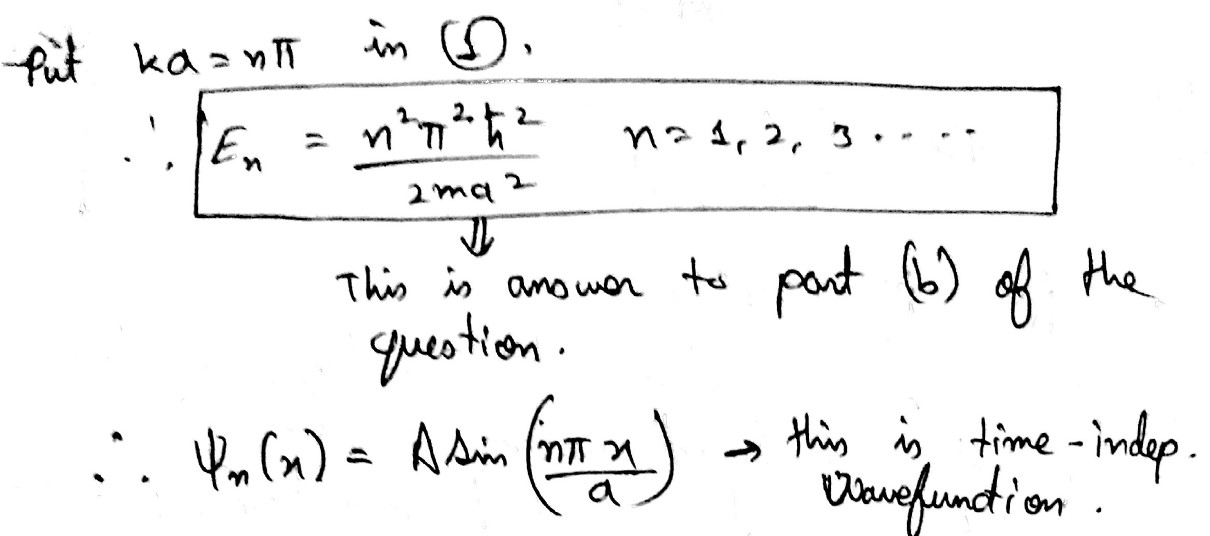 Put ka = nπ in ①.
∴ Eₙ = n²π²ħ² / 2ma² n = 1, 2, 3 .....
⇓
This is answer to part (b) of the
question.
∴ ψₙ(x) = A sin (nπx / a) → this is time-indep.
Wavefunction.